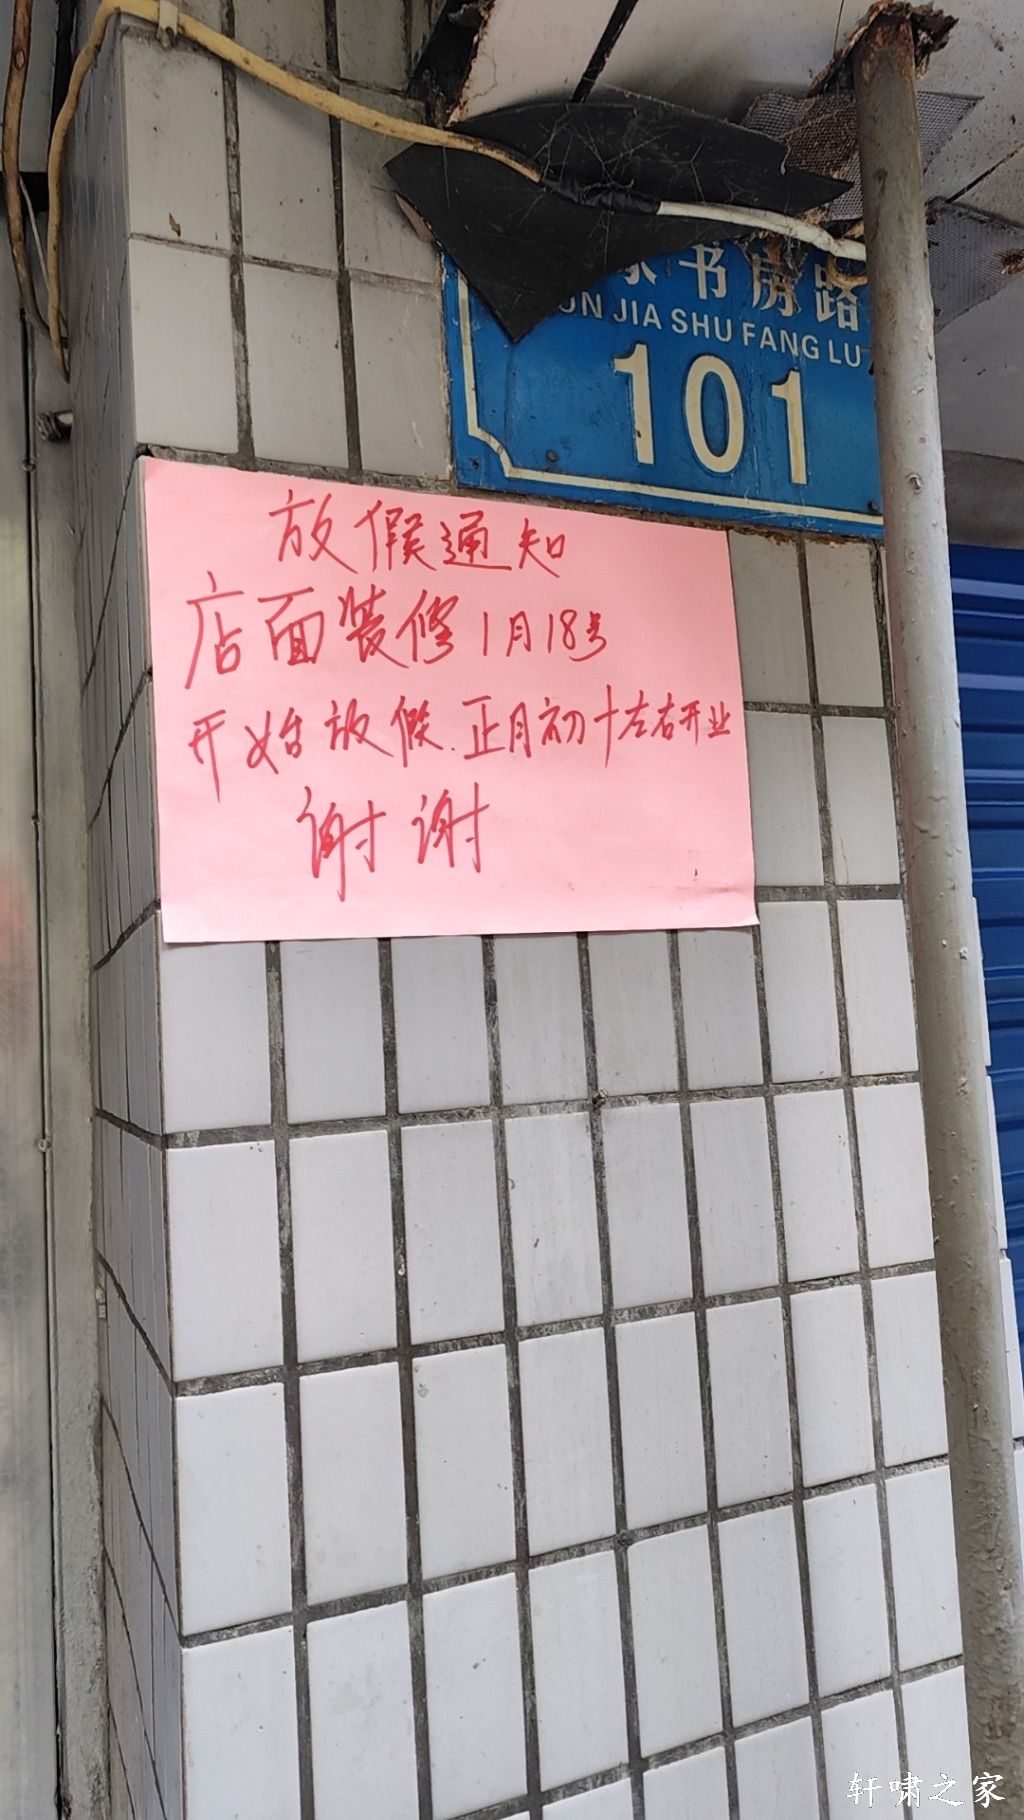 家书房路
UN JIA SHU FANG LU
101
放假通知
店面装修1月18号
开始放假.正月初十左右开业
谢谢
轩啸之家